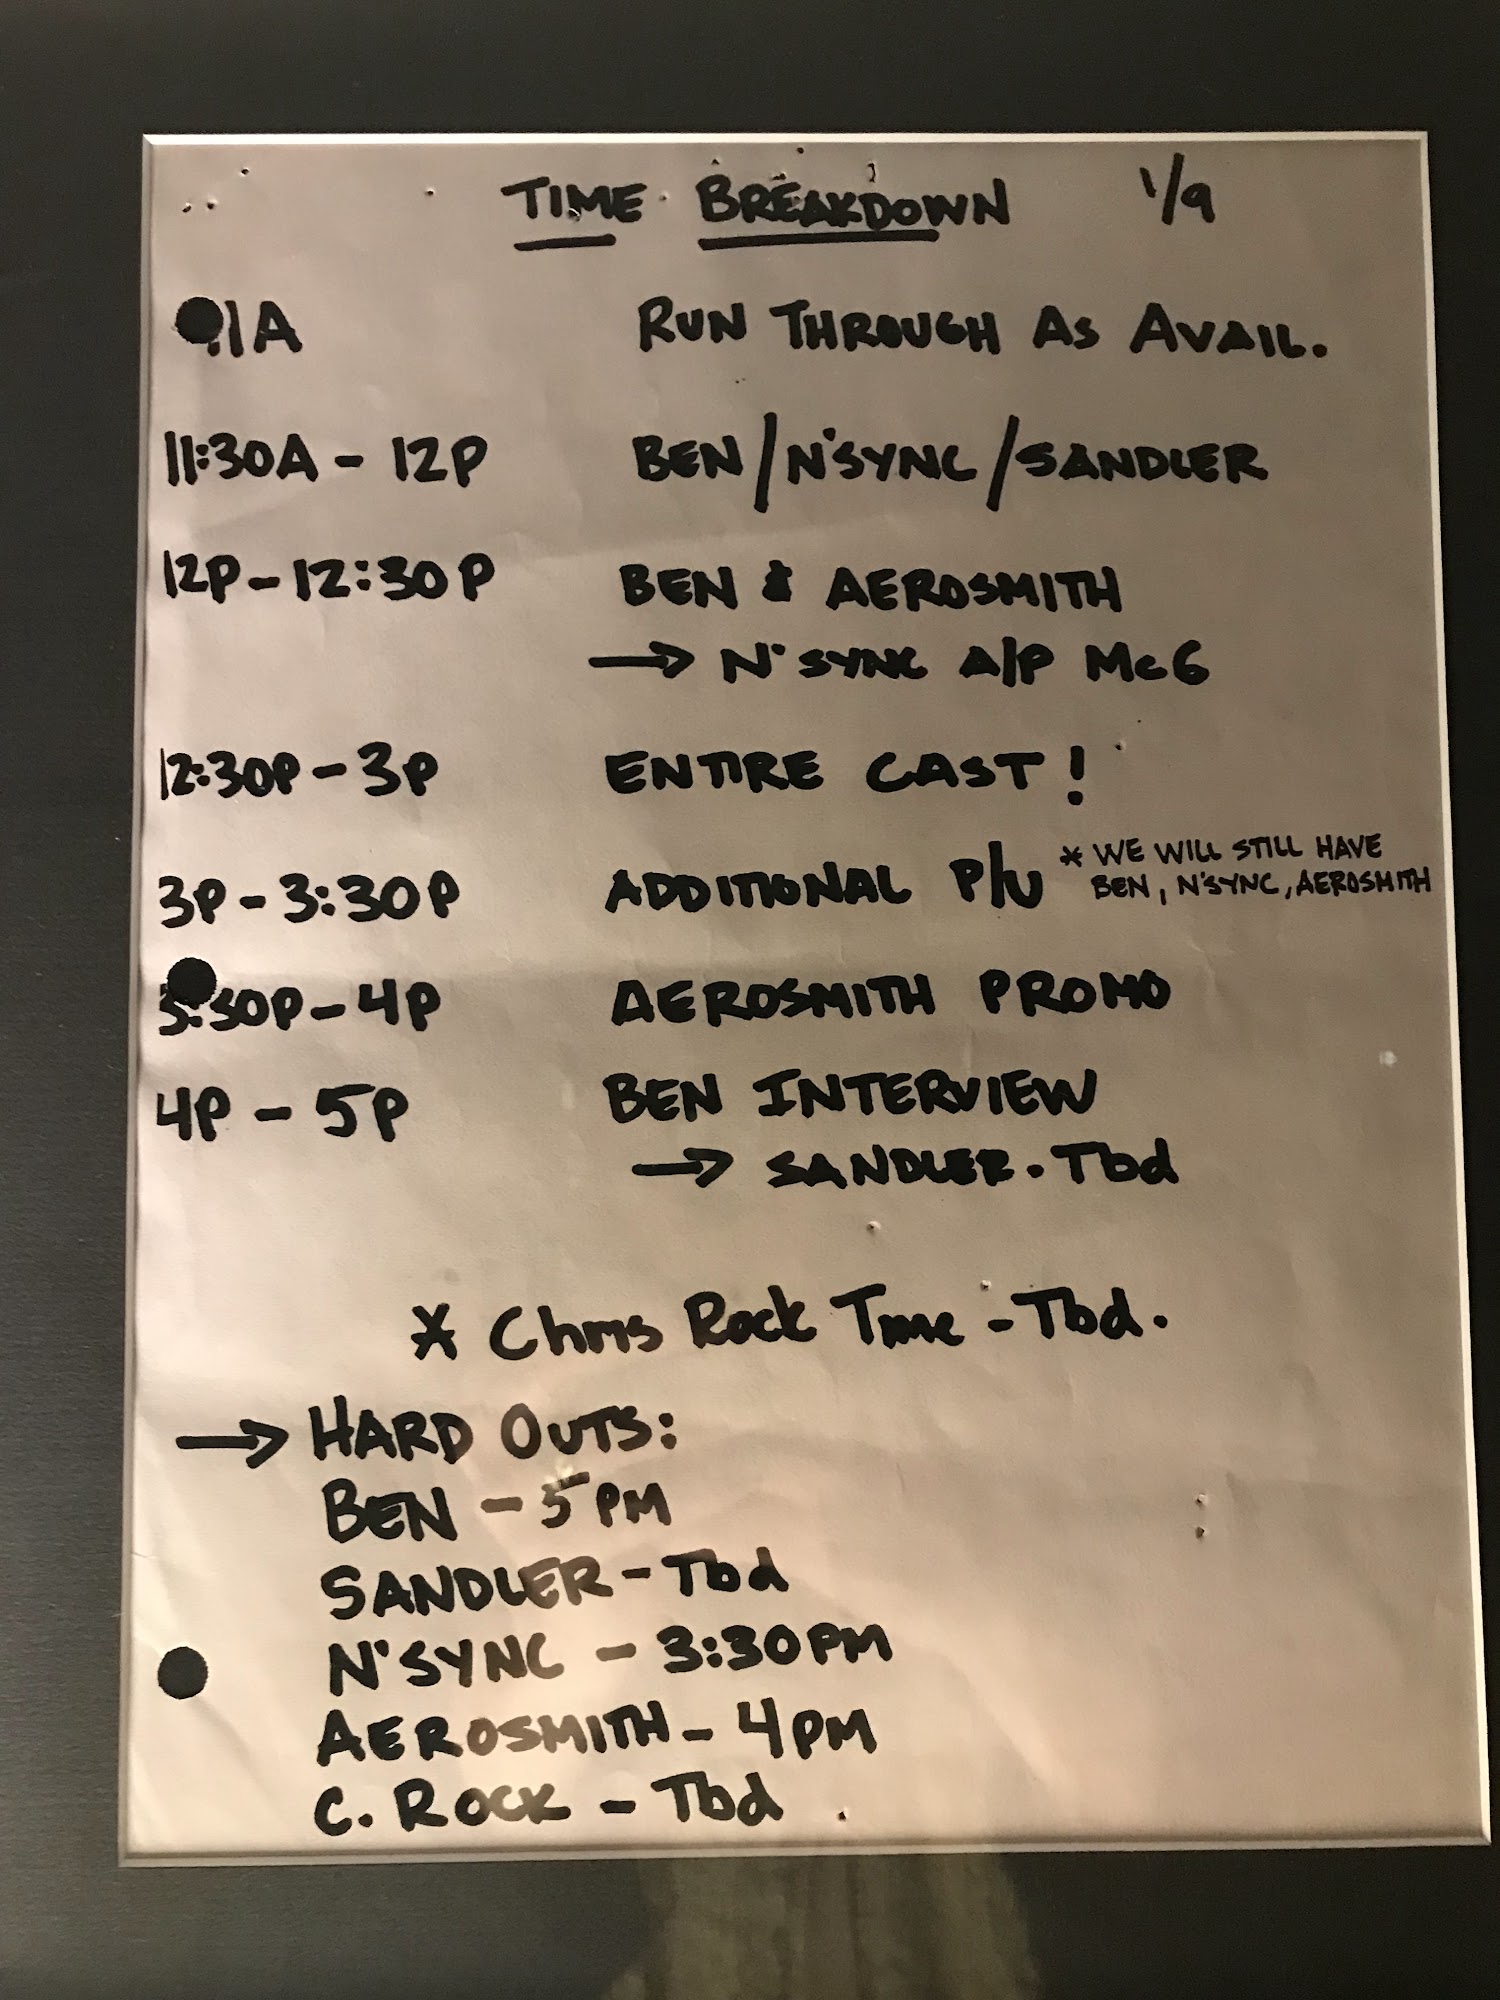 TIME BREAKDOWN 1/9
11A RUN THROUGH AS AVAIL.
11:30A - 12P BEN/N'SYNC/SANDLER
12P - 12:30P BEN & AEROSMITH
→ N'SYNC A/P McG
12:30P - 3P ENTIRE CAST!
3P - 3:30P ADDITIONAL P/U * WE WILL STILL HAVE
BEN, N'SYNC, AEROSMITH
3:30P - 4P AEROSMITH PROMO
4P - 5P BEN INTERVIEW
→ SANDLER. Tbd
* Chris Rock Time - Tbd.
→ HARD OUTS:
BEN - 5PM
SANDLER - Tbd
N'SYNC - 3:30PM
AEROSMITH - 4PM
C. ROCK - Tbd